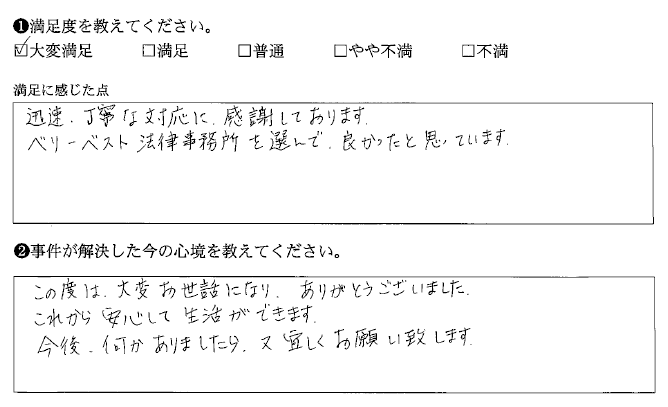 ❶満足度を教えてください。
☑大変満足 □満足 □普通 □やや不満 □不満
満足に感じた点
迅速、丁寧な対応に、感謝しております。
ベリーベスト法律事務所を選んで、良かったと思っています。
❷事件が解決した今の心境を教えてください。
この度は、大変お世話になり、ありがとうございました。
これから安心して生活ができます。
今後、何かありましたら、又宜しくお願い致します。